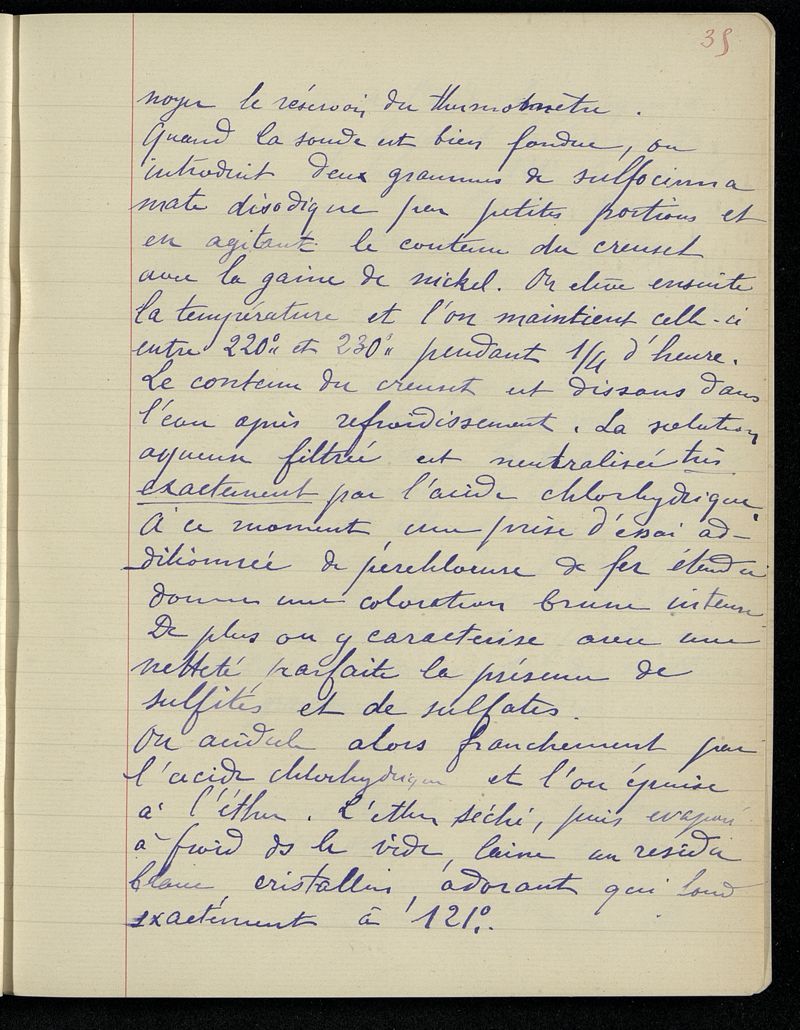 35
noyer le réservoir du thermomètre.
Quand la soude est bien fondue, on
introduit deux grammes de sulfocinna
mate disodique par petites portions et
en agitant le contenu du creuset
avec la gaine de nickel. On élève ensuite
la température et l'on maintient celle-ci
entre 220° et 230° pendant 1/4 d'heure.
Le contenu du creuset est dissous dans
l'eau après refroidissement. La solution
aqueuse filtrée est neutralisée très
exactement par l'acide chlorhydrique.
À ce moment, une prise d'essai ad-
ditionnée de perchlorure de fer étendu
donne une coloration brune intense
De plus on y caractérise avec une
netteté parfaite la présence de
sulfites et de sulfates.
On acidule alors franchement par
l'acide chlorhydrique et l'on épuise
à l'éther. L'éther séché, puis evaporé
à froid ds le vide, laisse un residu
blanc cristallin, adorant qui fond
exactement à 121°.